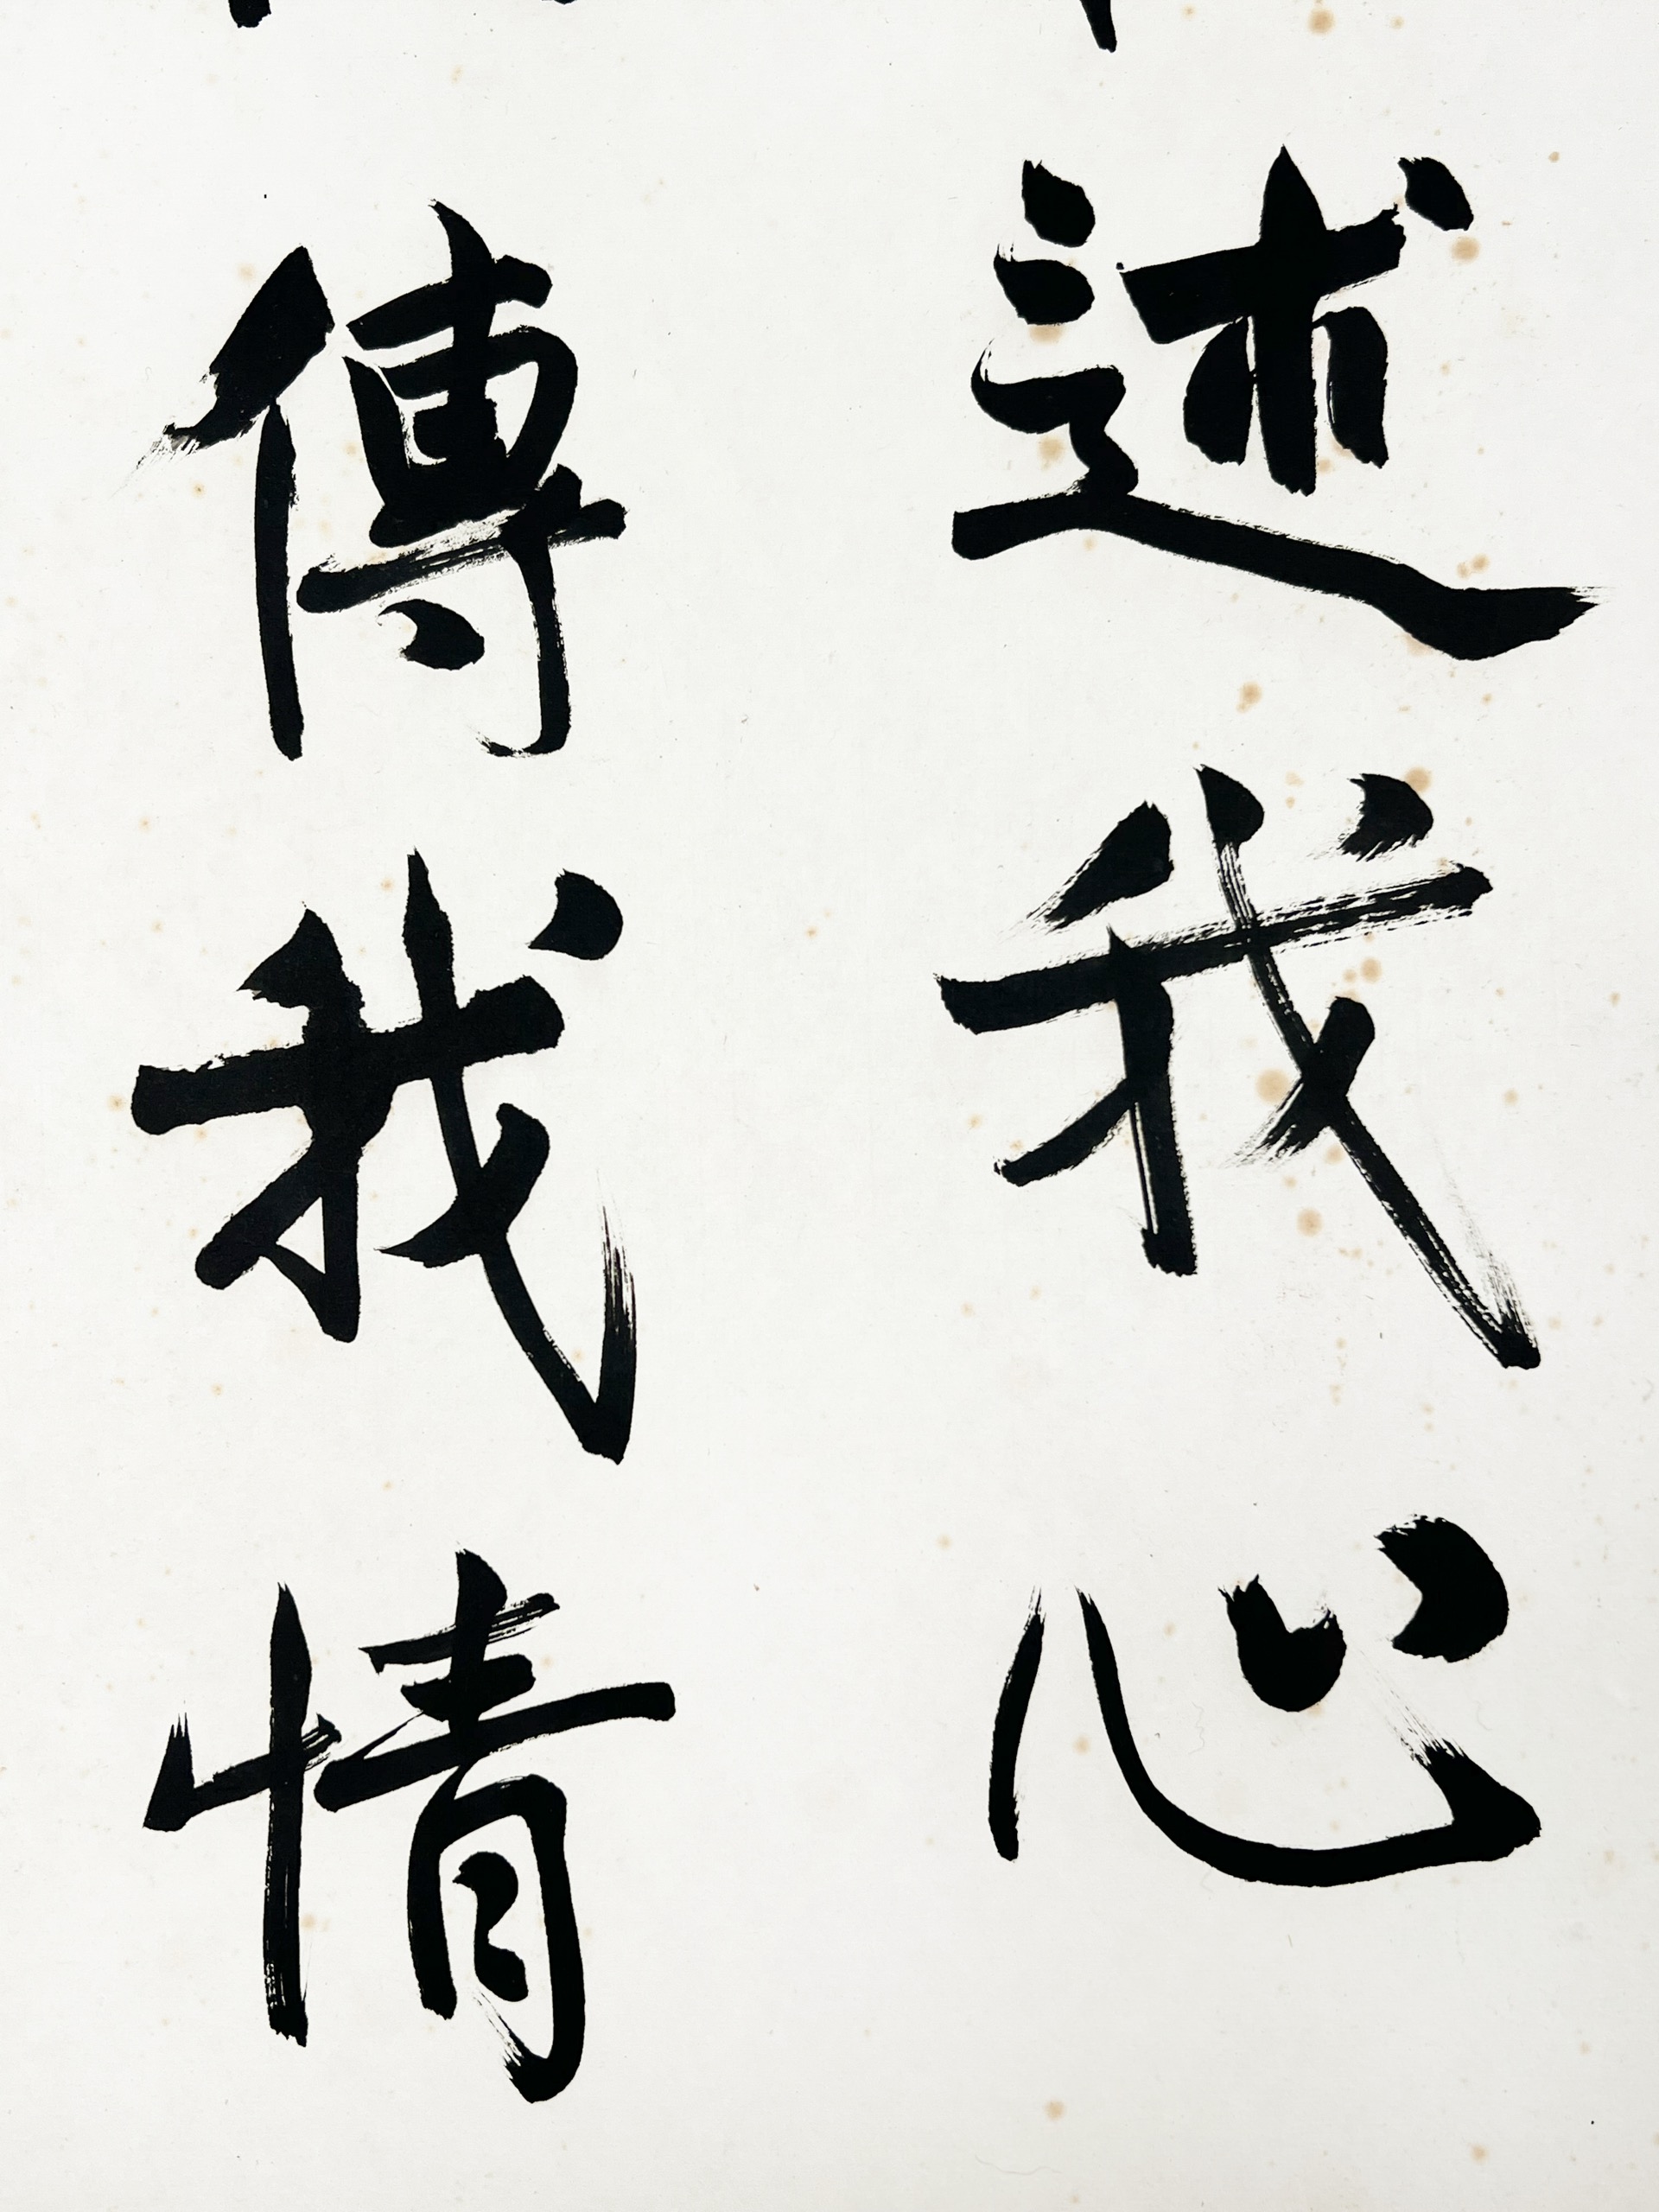 述我心
傳我情